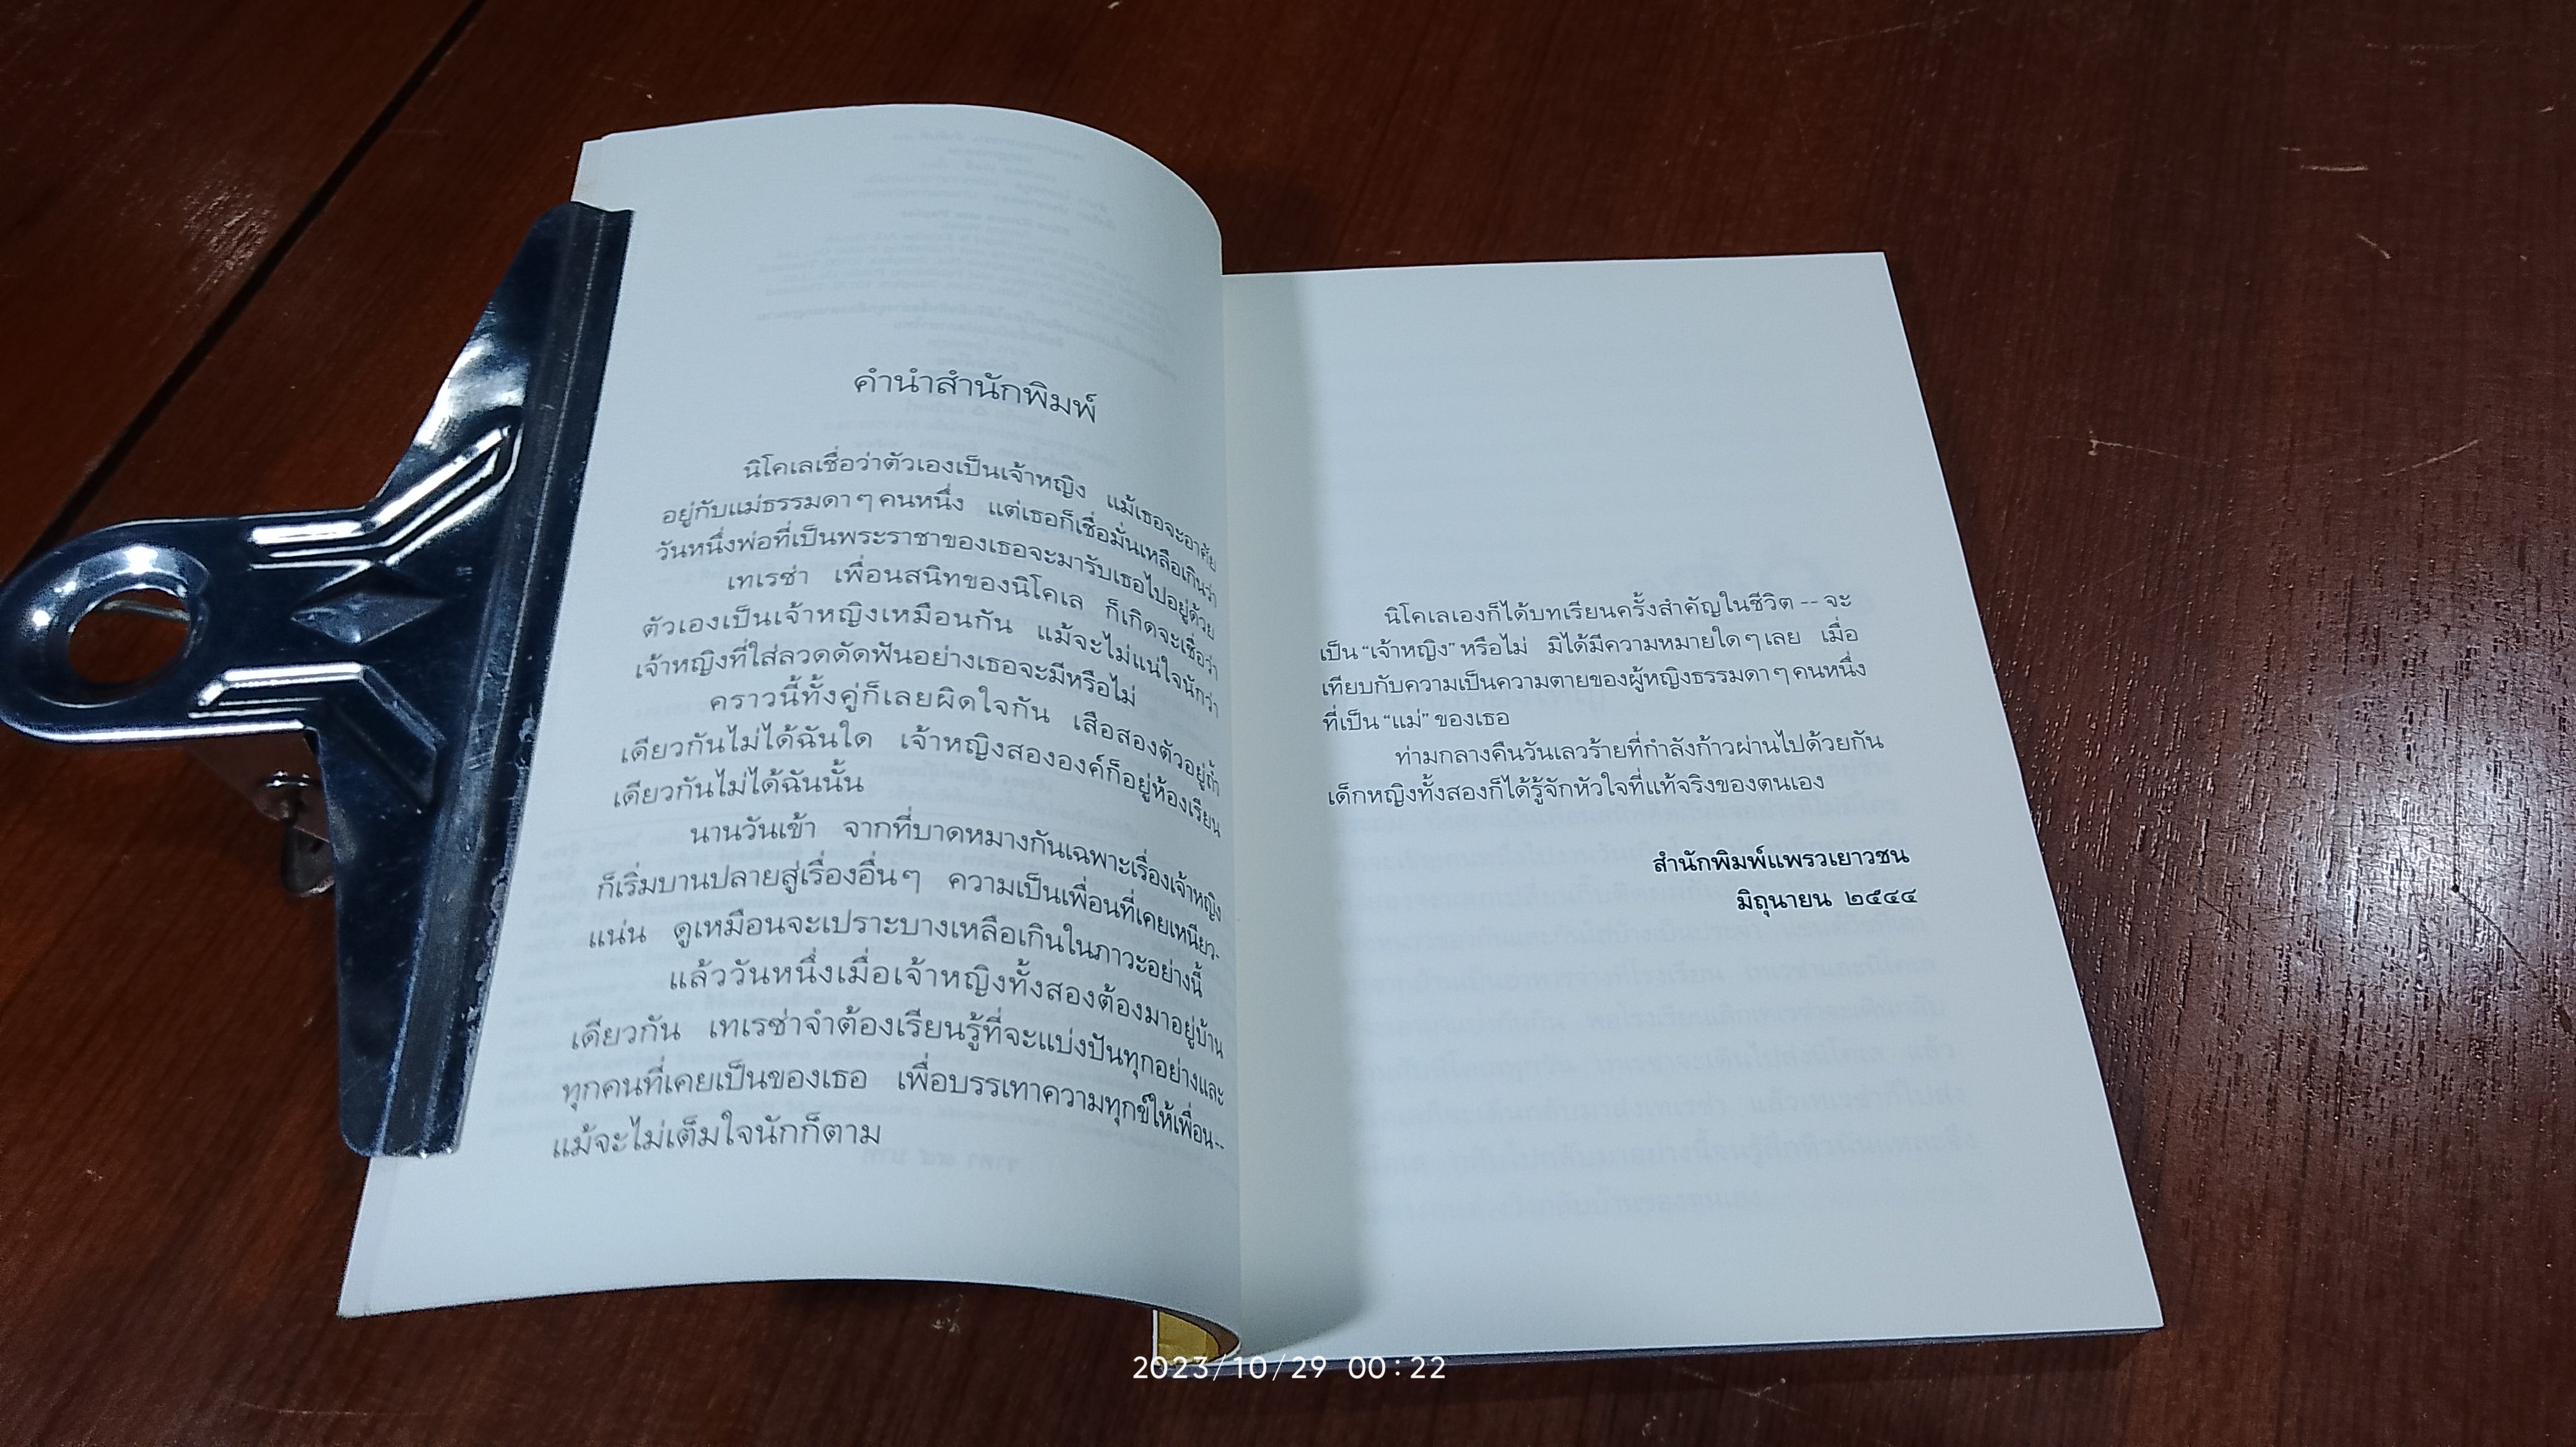 คำนำสำนักพิมพ์
นิโคเลเชื่อว่าตัวเองเป็นเจ้าหญิง แม้เธอจะอาศัย
อยู่กับแม่ธรรมดาๆ คนหนึ่ง แต่เธอก็เชื่อมั่นเหลือเกินว่า
วันหนึ่งพ่อที่เป็นพระราชาของเธอจะมารับเธอไปอยู่ด้วย
เทเรซ่า เพื่อนสนิทของนิโคเล ก็เกิดจะเชื่อว่า
ตัวเองเป็นเจ้าหญิงเหมือนกัน แม้จะไม่แน่ใจนักว่า
เจ้าหญิงที่ใส่ลวดดัดฟันอย่างเธอจะมีหรือไม่
คราวนี้ทั้งคู่ก็เลยผิดใจกัน เสือสองตัวอยู่ถ้ำ
เดียวกันไม่ได้ฉันใด เจ้าหญิงสององค์ก็อยู่ห้องเรียน
เดียวกันไม่ได้ฉันนั้น
นานวันเข้า จากที่บาดหมางกันเฉพาะเรื่องเจ้าหญิง
ก็เริ่มบานปลายสู่เรื่องอื่นๆ ความเป็นเพื่อนที่เคยเหนียว-
แน่น ดูเหมือนจะเปราะบางเหลือเกินในภาวะอย่างนี้
แล้ววันหนึ่งเมื่อเจ้าหญิงทั้งสองต้องมาอยู่บ้าน
เดียวกัน เทเรซ่าจำต้องเรียนรู้ที่จะแบ่งปันทุกอย่างและ
ทุกคนที่เคยเป็นของเธอ เพื่อบรรเทาความทุกข์ให้เพื่อน--
แม้จะไม่เต็มใจนักก็ตาม
นิโคเลเองก็ได้บทเรียนครั้งสำคัญในชีวิต -- จะ
เป็น “เจ้าหญิง” หรือไม่ มิได้มีความหมายใดๆ เลย เมื่อ
เทียบกับความเป็นความตายของผู้หญิงธรรมดาๆ คนหนึ่ง
ที่เป็น “แม่” ของเธอ
ท่ามกลางคืนวันเลวร้ายที่กำลังก้าวผ่านไปด้วยกัน
เด็กหญิงทั้งสองก็ได้รู้จักหัวใจที่แท้จริงของตนเอง
สำนักพิมพ์แพรวเยาวชน
มิถุนายน ๒๕๔๔
2023/10/29 00:22